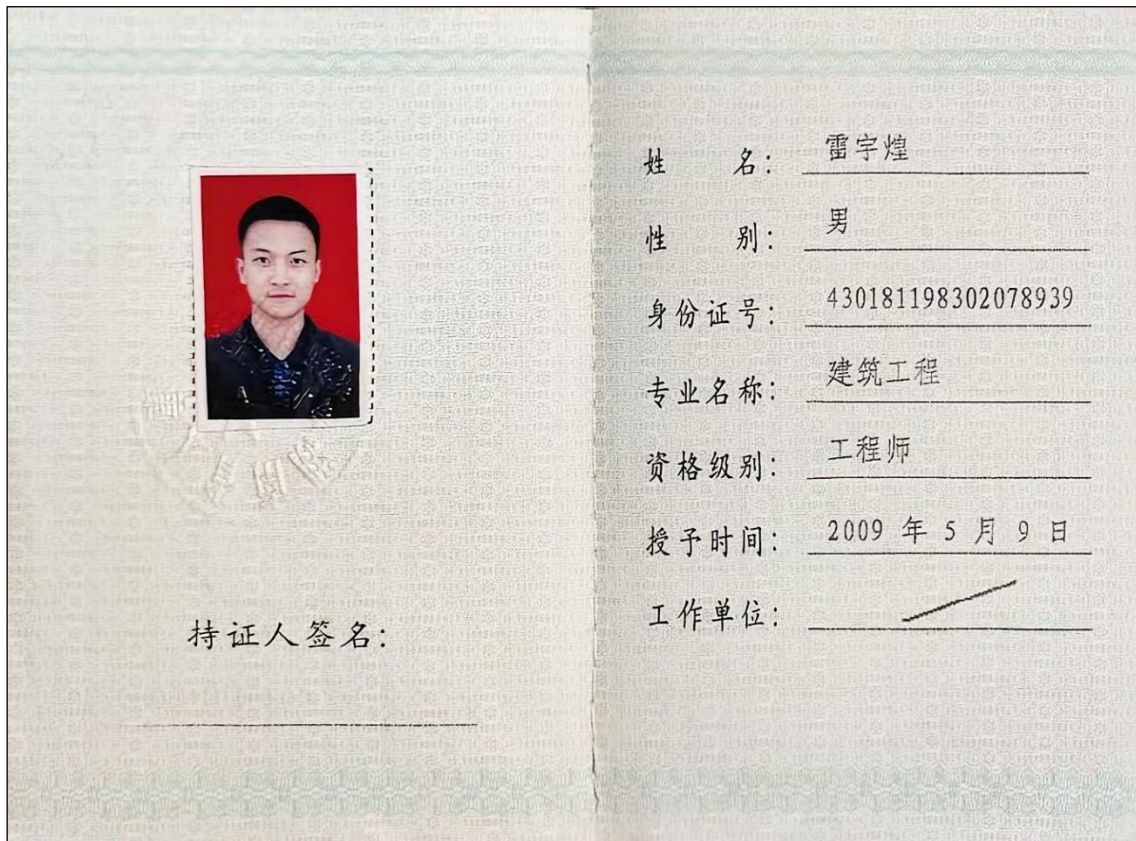 持证人签名:
姓 名: 雷宇煌
性 别: 男
身份证号: 430181198302078939
专业名称: 建筑工程
资格级别: 工程师
授予时间: 2009 年 5 月 9 日
工作单位: